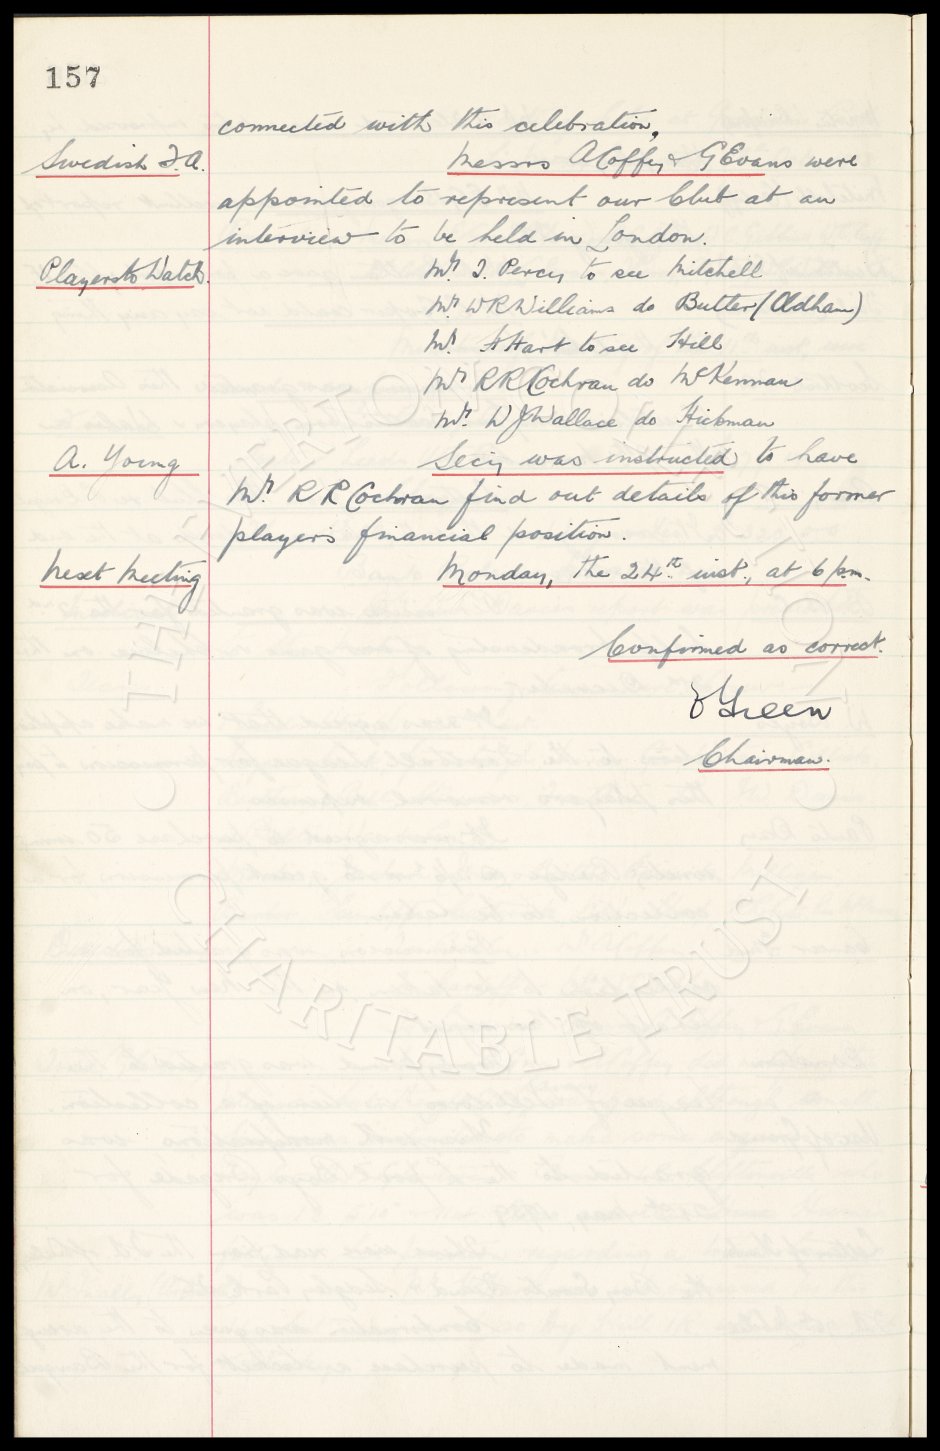 157
connected with this celebration.
Swedish F.A. Messrs A Coffey & G Evans were
appointed to represent our Club at an
interview to be held in London.
Players to Watch. Mr. T. Percy to see Mitchell
Mr. W R Williams do Butler (Oldham)
Mr. A Hart to see Hill
Mr. R R Cochran do McKennan
Mr. W J Wallace do Hickman
A. Young Secy was instructed to have
Mr. R R Cochran find out details of this former
player's financial position.
Next Meeting Monday, the 24th. inst., at 6 p.m.
Confirmed as correct.
Green
Chairman.
THE EVERTON COLLECTION
CHARITABLE TRUST